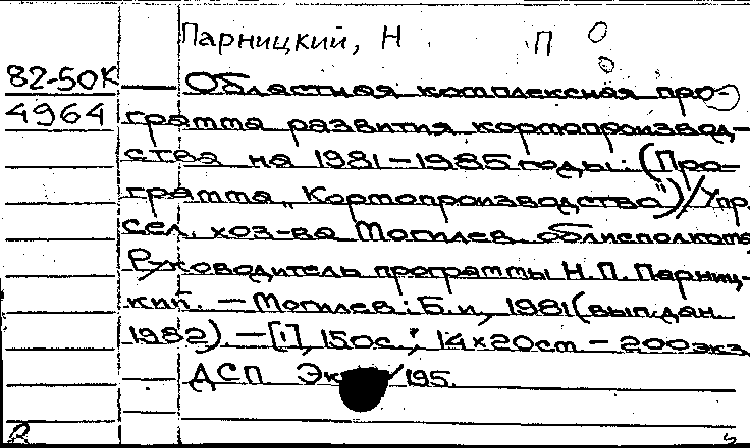 Парницкий, Н П
82-50К Областная комплексная про-
4964 грамма развития кормопроизвод-
ства на 1981-1985 годы: (Про-
грамма "Кормопроизводство")/Упр.
сел. хоз-ва Могилев. облисполкома,
Руководитель программы Н.П. Парниц-
кий. — Могилев: Б.и, 1981 (вып.дан.
1982). — [1], 150с.; 14×20см - 200экз.
ДСП /195.